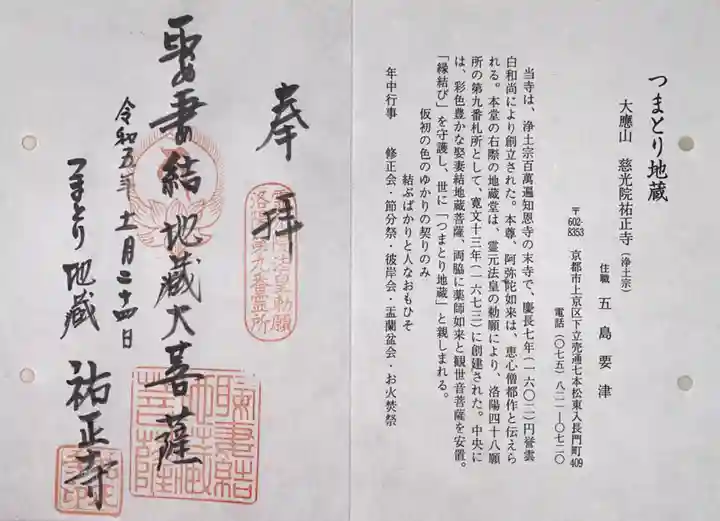 つまとり地蔵
大應山　慈光院祐正寺（浄土宗）
住職　五島要津
〒602-8353　京都市上京区下立売通七本松東入長門町409
電話（〇七五）八一一―〇七二〇
当寺は、浄土宗百萬遍知恩寺の末寺で、慶長七年（一六〇二）円誉雲
白和尚により創立された。本尊、阿弥陀如来は、恵心僧都作と伝えら
れる。本堂の右際の地蔵堂は、霊元法皇の勅願により、洛陽四十八願
所の第九番札所として、寛文十三年（一六七三）に創建された。中央に
は、彩色豊かな娶妻結地蔵菩薩、両脇に薬師如来と観世音菩薩を安置。
「縁結び」を守護し、世に「つまとり地蔵」と親しまれる。
仮初の色のゆかりの契りのみ
結ぶばかりと人なおもひそ
年中行事　修正会・節分祭・彼岸会・盂蘭盆会・お火焚祭
奉拝
霊元法皇勅願
洛陽第九番霊所
娶妻結地蔵大菩薩
令和五年十一月二十四日
つまとり地蔵　祐正寺
娶妻結
地蔵
菩薩